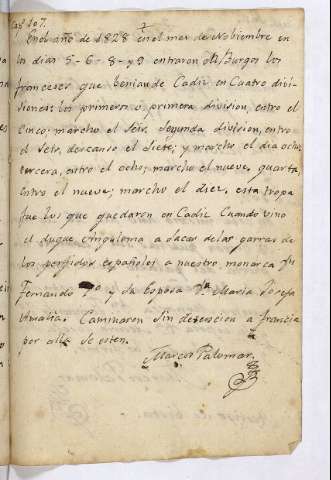 En el año de 1828 en el mes de Nobiembre en
los dias 5-6-8-y9 entraron en Burgos los
franceses que benian de Cadiz en Cuatro divi-
siones: los primeros ó primera division, entro el
Cinco; marcho el Seis, Segunda division, entro
el Seis, descanso el Siete; y marcho el dia ocho
tercera, entro el ocho; marcho el nueve, quarta
entro el nueve; marcho el diez, esta tropa
fue los que quedaron en Cadiz Cuando vino
el duque a sacar de las garras de
los perfidos españoles a nuestro monarca Sr
Fernando 7o y su esposa Da Maria Josefa
Amalia. Caminaron Sin desercion a francia
por alla se esten.
Marcos Palomar